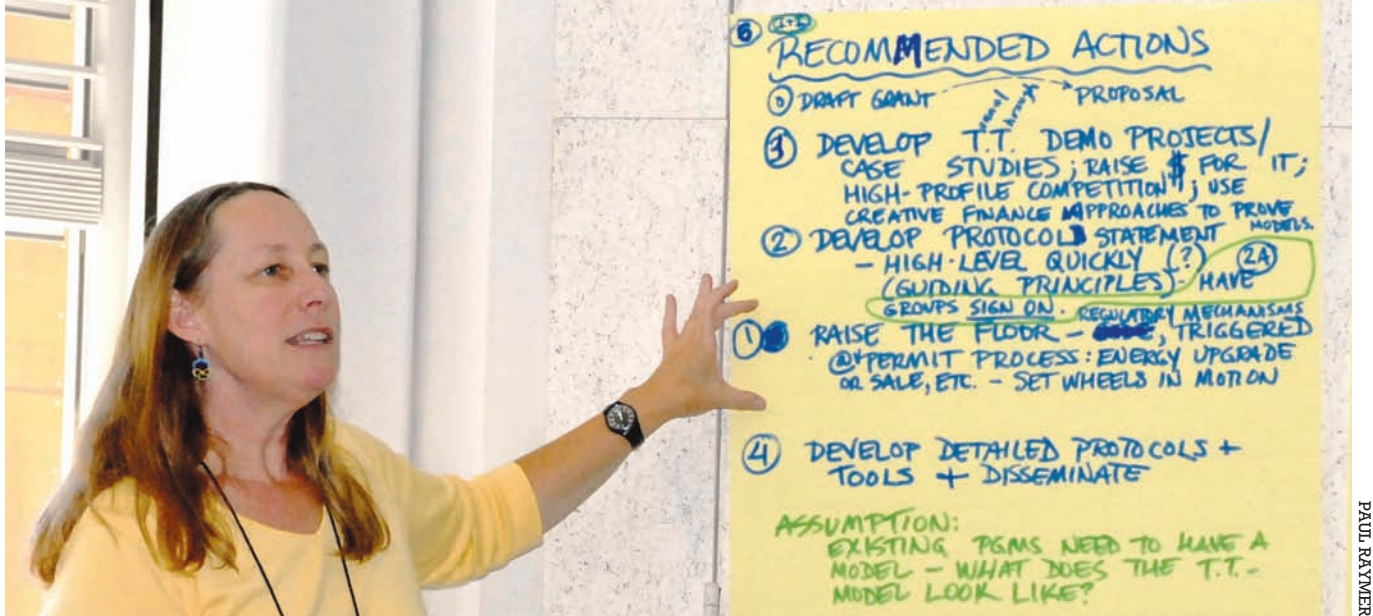 6
RECOMMENDED ACTIONS
0 DRAFT GRANT PROPOSAL
3 DEVELOP T.T. DEMO PROJECTS/
CASE STUDIES; RAISE $ FOR IT;
HIGH-PROFILE COMPETITION; USE
CREATIVE FINANCE APPROACHES TO PROVE
MODELS.
2 DEVELOP PROTOCOL STATEMENT
- HIGH-LEVEL QUICKLY (?) 2A
(GUIDING PRINCIPLES) - HAVE
GROUPS SIGN ON. REGULATORY MECHANISMS
1 RAISE THE FLOOR - , TRIGGERED
@ PERMIT PROCESS: ENERGY UPGRADE
OR SALE, ETC. - SET WHEELS IN MOTION
4 DEVELOP DETAILED PROTOCOLS +
TOOLS + DISSEMINATE
ASSUMPTION:
EXISTING PGMS NEED TO HAVE A
MODEL - WHAT DOES THE T.T.-
MODEL LOOK LIKE?
PAUL RAYMER